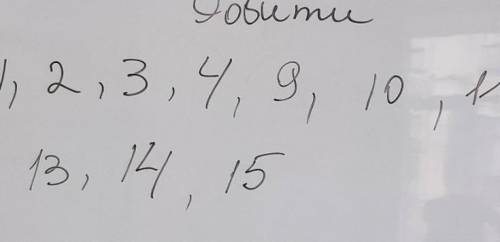 1, 2, 3, 4, 9, 10,
13, 14, 15